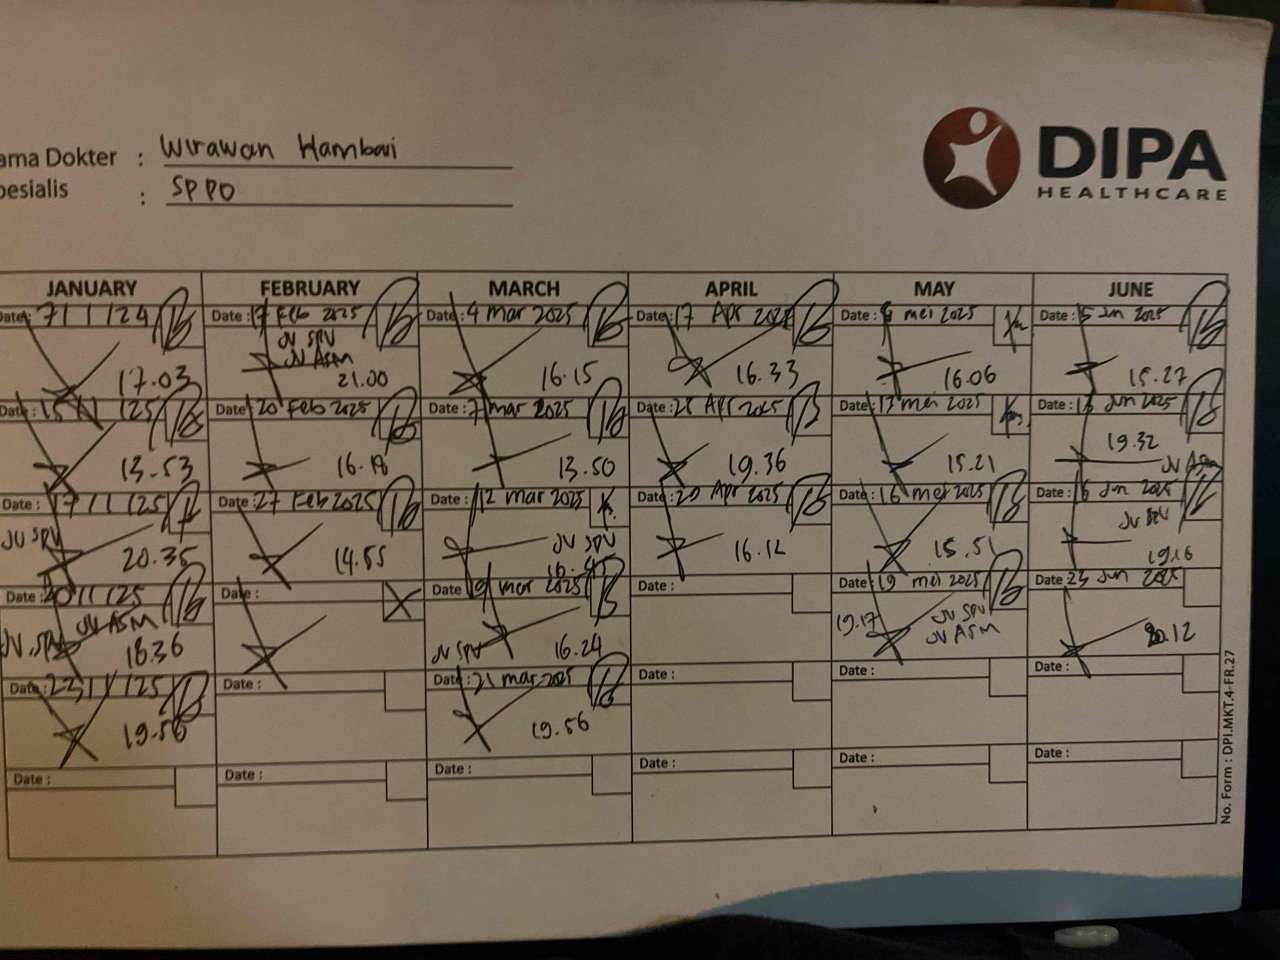 DIPA
HEALTHCARE
ama Dokter : Wirawan Hambari
pesialis : SPPD
JANUARY FEBRUARY MARCH APRIL MAY JUNE
Date: 7/1/24 Date: 17 Feb 2025 Date: 4 mar 2025 Date: 17 Apr 2025 Date: mei 2025 Date: 5 Jun 2025
JV SPV
JV ASM
17.03 21.00 16.15 16.33 16.06 15.27
Date: 15/1/25 Date: 20 Feb 2025 Date: 7 mar 2025 Date: Apr 2025 Date: 13 mei 2025 Date: Jun 2025
13.53 16.18 13.50 19.36 15.21 19.32
JV ASM
Date: 17/1/25 Date: 27 Feb 2025 Date: 12 mar 2025 Date: Apr 2025 Date: 16 mei 2025 Date: Jun 2025
JV SPV JV SPV JV SPV
20.35 14.55 16.12 15.51 19.16
Date: 20/1/25 Date: Date: 19 mar 2025 Date: Date: 19 mei 2025 Date: 23 Jun 2025
JV ASM JV SPV
JV SPV 18.36 JV SPV 16.24 19.17 JV ASM 20.12
Date: 22/1/25 Date: Date: 21 mar 2025 Date: Date: Date:
19.56 19.56
Date: Date: Date: Date: Date: Date:
No. Form : DPI.MKT.4-FR.27